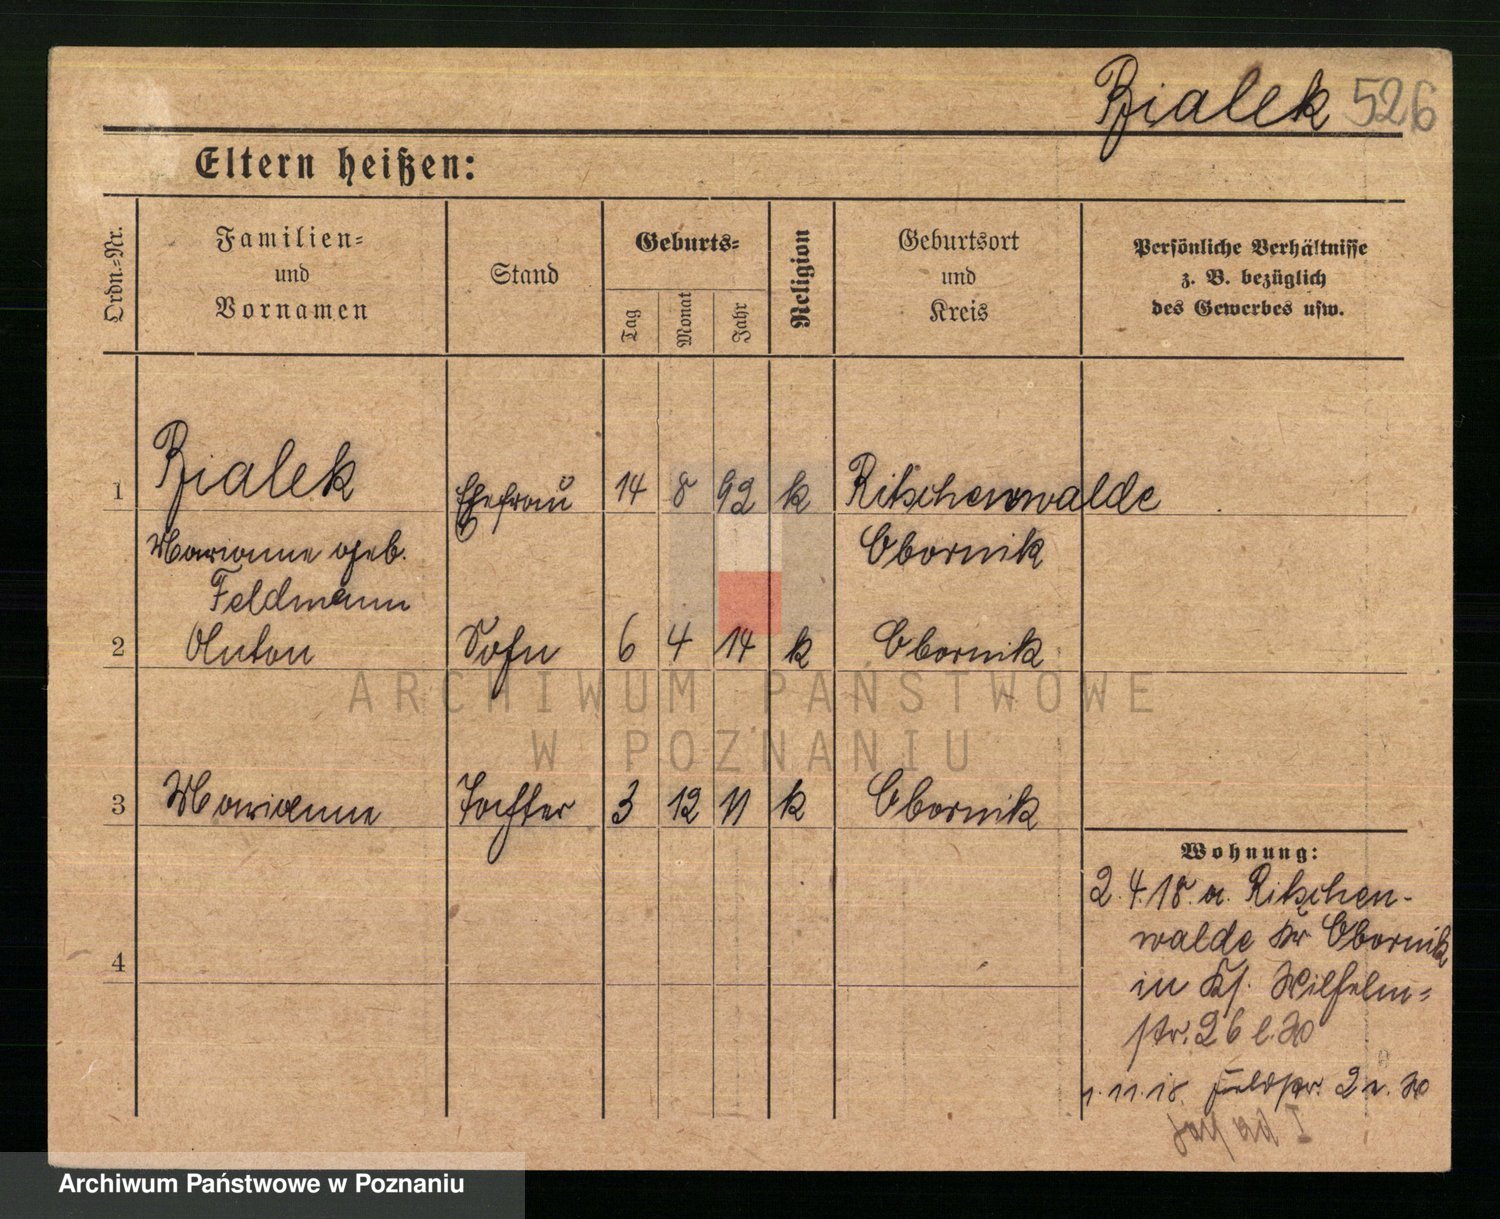 Bialek 526
Eltern heißen:
Ordn.-Nr.
Familien-
und
Vornamen
Stand
Geburts-
Tag
Monat
Jahr
Religion
Geburtsort
und
Kreis
Persönliche Verhältnisse
z. B. bezüglich
des Gewerbes usw.
1 Bialek Ehefrau 14 8 92 k Ritschenwalde
Marianne geb. Obornik
Feldmann
2 Anton Sohn 6 4 14 k Obornik
ARCHIWUM PAŃSTWOWE
W POZNANIU
3 Marianne Tochter 3 12 11 k Obornik
Wohnung:
2.4.18. a. Ritschen-
walde Kr Obornik
4
in Wilhelm-
str. 26
1.11.18. Feldstr. 2
ad I
Archiwum Państwowe w Poznaniu